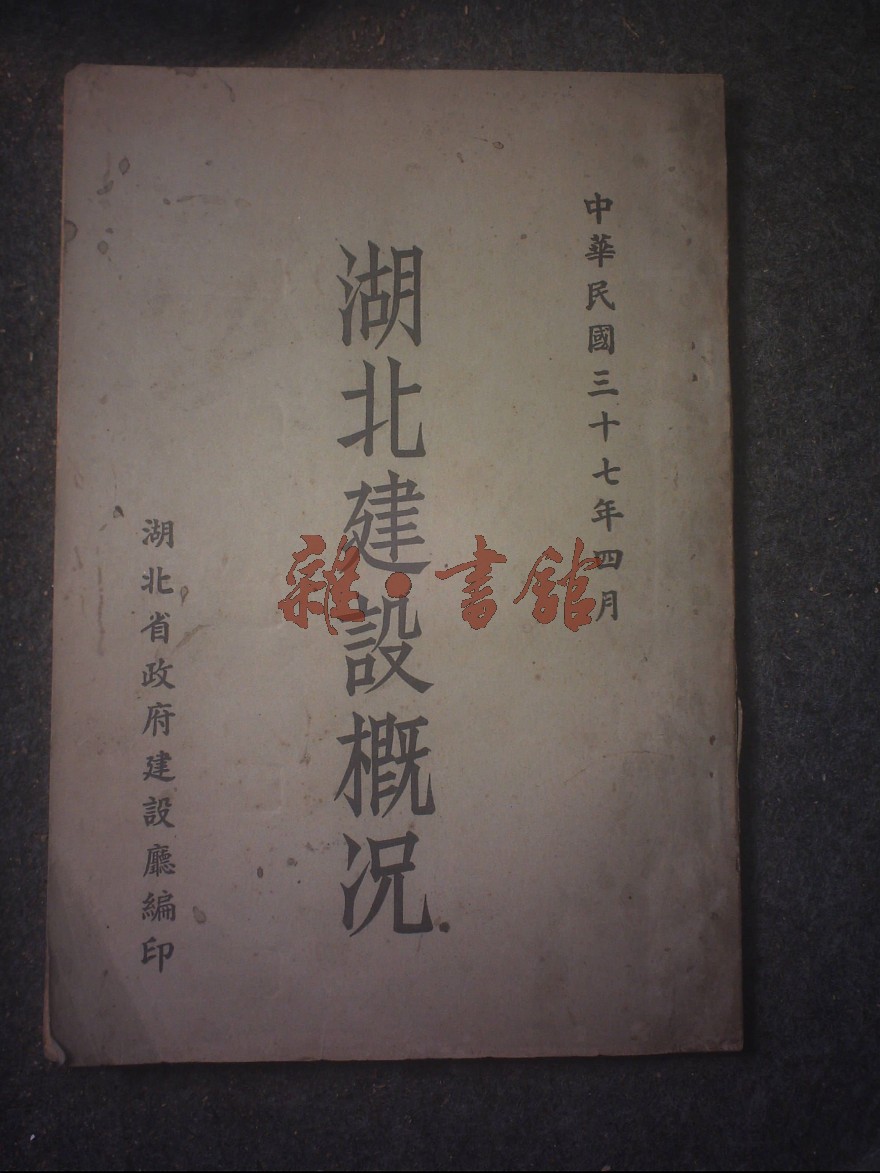 中華民國三十七年四月
湖北建設概况
湖北省政府建設廳編印
雜·書館